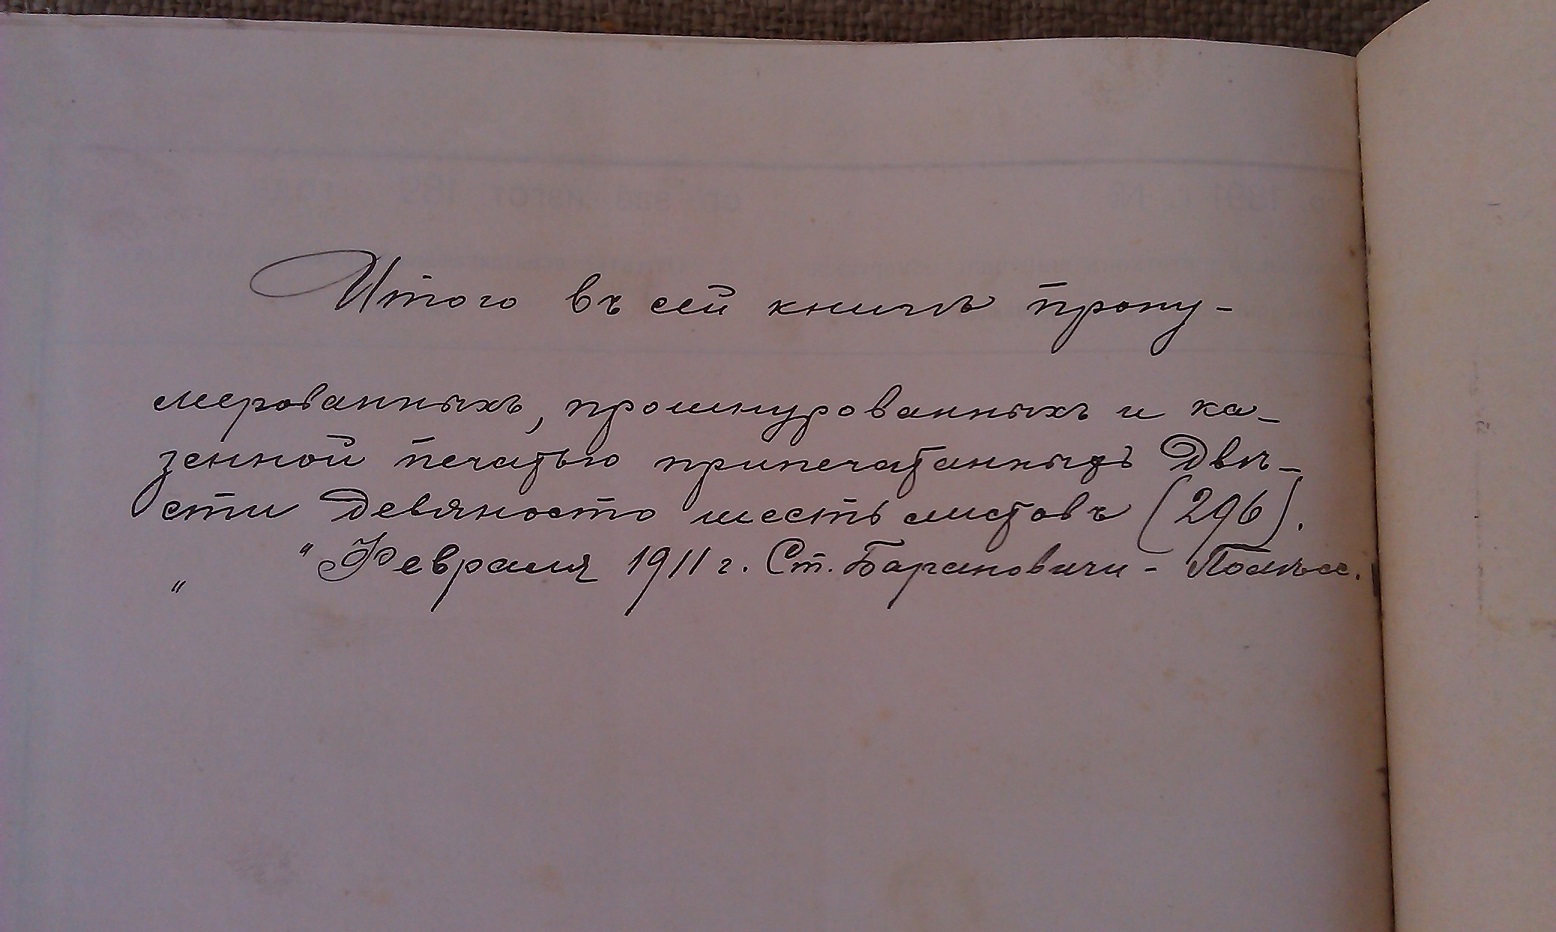 Итого въ сей книгѣ прону-
мерованныхъ, прошнурованныхъ и ка-
зенной печатью припечатанныхъ Двѣ-
сти девяносто шесть листовъ (296).
„ “ Февраля 1911 г. Ст. Барановичи - Полѣсс.